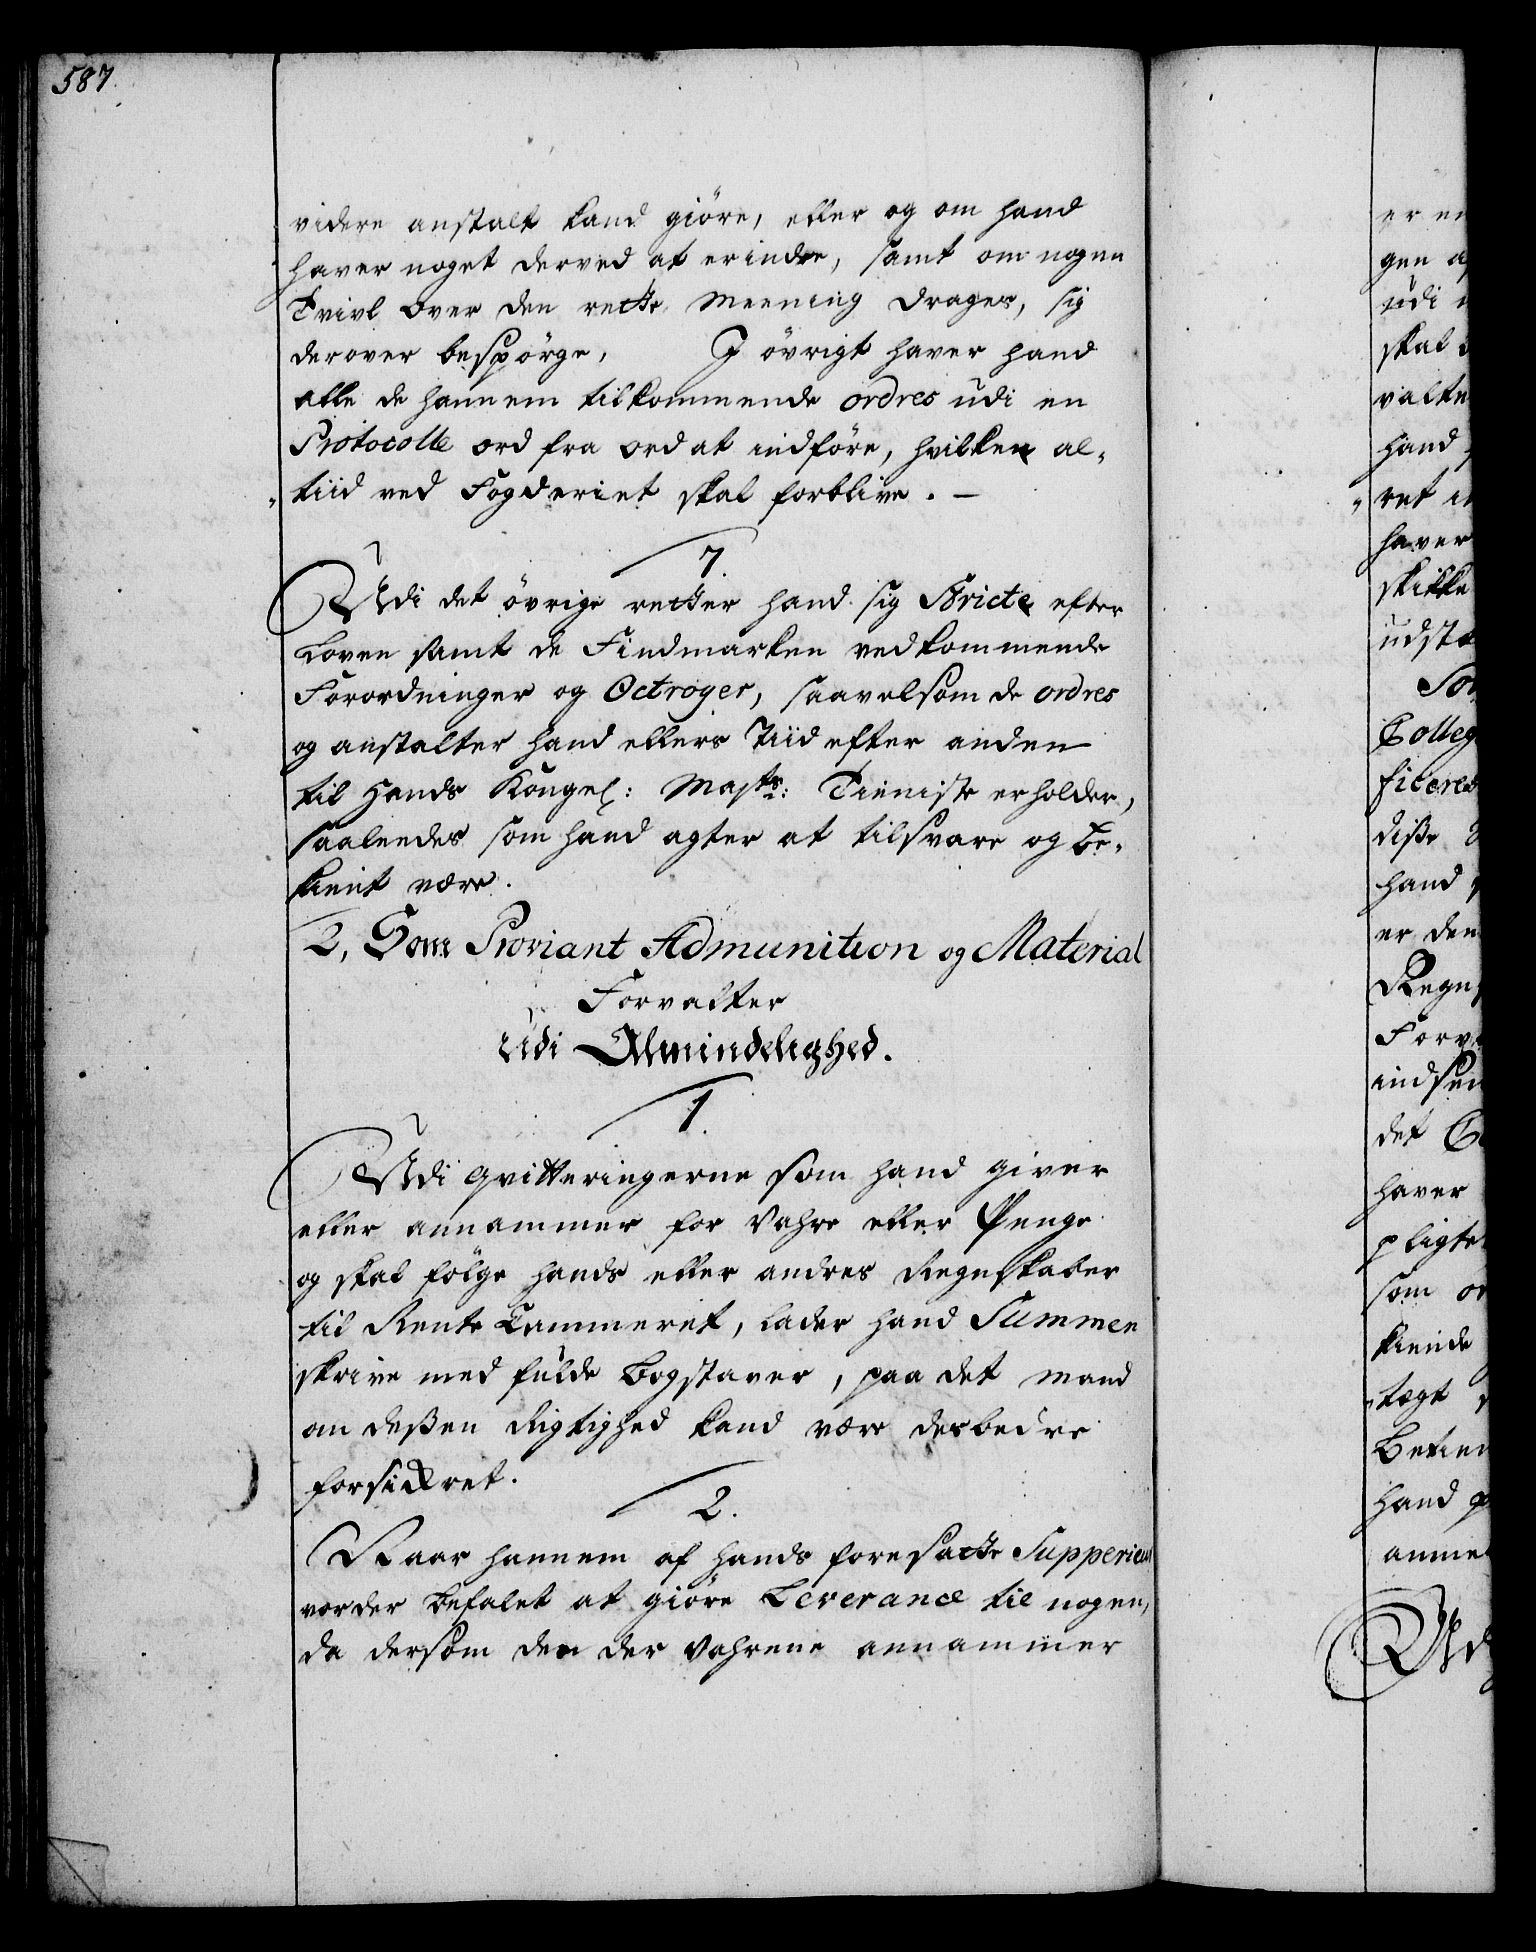 587.
videre anstalt kand giöre, eller og om hand
haver noget derved at erindre, samt om nogen
Tvivl over den rette Meening drages, sig
derover bespörge, J övrigt haver hand
alle de hannem tilkommende ordres udi en
Protocolle ord fra ord at indföre, hvilken al-
tiid ved Fogderiet skal forblive. –
7.
Udi det övrige retter hand sig Stricte efter
Loven samt de Findmarken vedkommende
Forordninger og Octroyer, saavelsom de ordres
og anstalter hand ellers Tiid efter anden
til Hands Kongel: Maj:ts: Tieniste erholder,
saaleedes som hand agter at tilsvare og be-
kient være.
2, Som Proviant Admunition og Material
Forvalter
Udi Almindelighed.
1.
Udi qvitteringerne som hand giver
eller annammer for Vahre eller Penge
og skal fölge hands eller andres Regnskaber
til Rente Cammeret, lader hand Summen
skrive med fulde Bogstaver, paa det mand
om deßen Rigtighed kand være desbedre
forsickret.
2.
Naar hannem af hands foresatte Supperieur
vorder befalet at giöre Leverance til nogen,
da dersom den der Vahrene annammer
er en
udi
skal
hand
ret
haver
skikke
udstæ
Colleg
ficered
diße
hand
er den
Regn
Forv
indsen
det
haver
pligte
som or
kiende
tægt
Betien
hand
anme
Ud